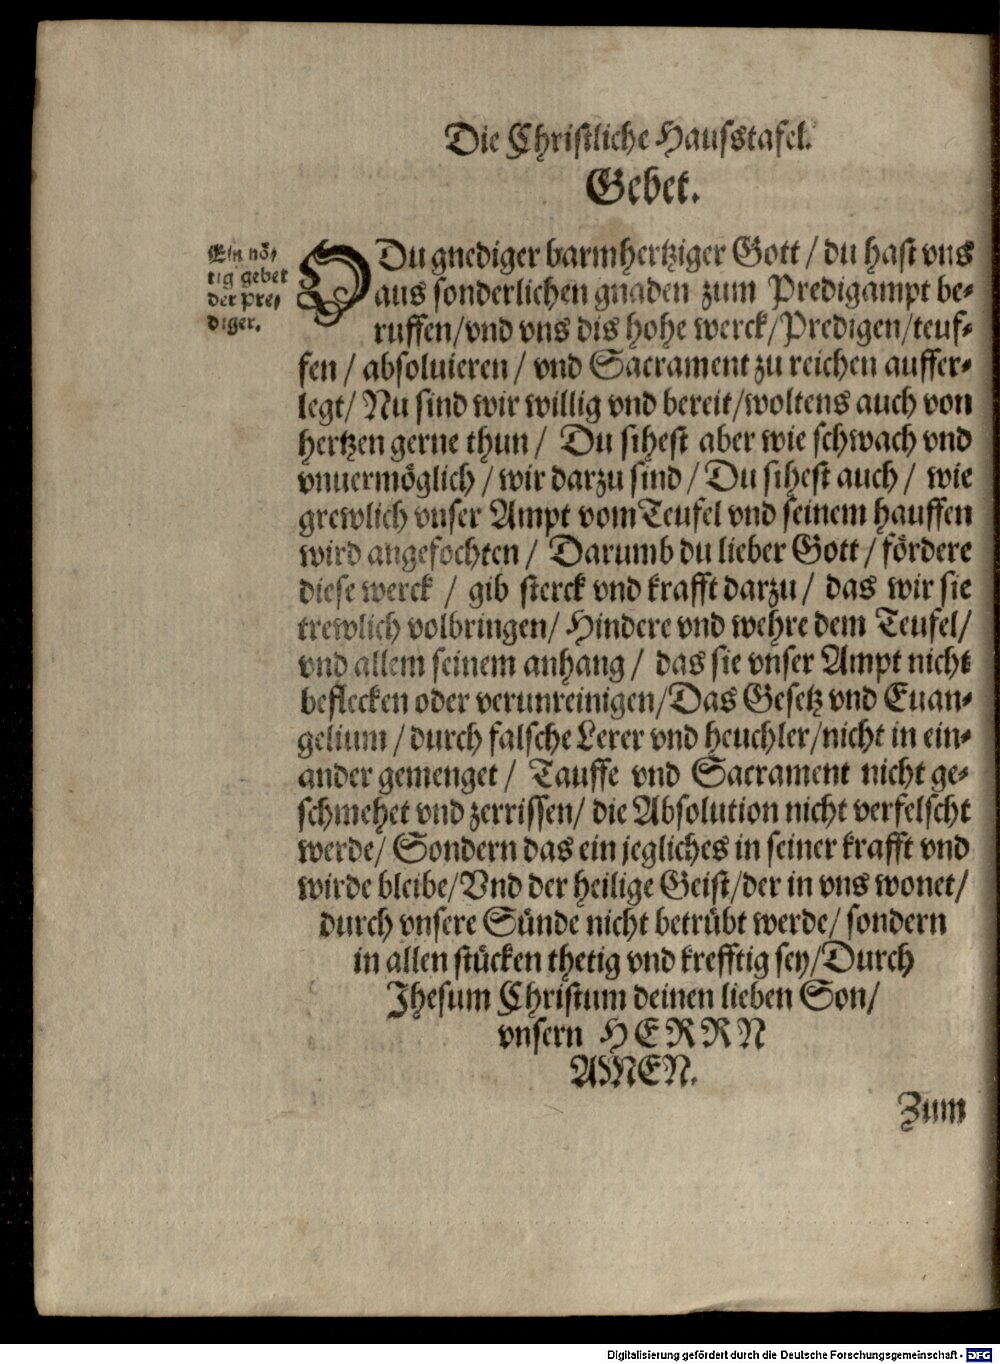 Die Christliche Hausstafel.
Gebet.
Ein nö-
tig gebet
der Pre-
diger.
O Du gnediger barmhertziger Gott / du hast vns
aus sonderlichen gnaden zum Predigampt be-
ruffen/vnd vns dis hohe werck/Predigen/teuf-
fen / absoluieren / vnd Sacrament zu reichen auffer-
legt/ Nu sind wir willig vnd bereit/woltens auch von
hertzen gerne thun / Du sihest aber wie schwach vnd
vnuermöglich / wir darzu sind / Du sihest auch / wie
grewlich vnser Ampt vom Teufel vnd seinem hauffen
wird angefochten / Darumb du lieber Gott / fördere
diese werck / gib sterck vnd krafft darzu / das wir sie
trewlich volbringen/ Hindere vnd wehre dem Teufel/
vnd allem seinem anhang / das sie vnser Ampt nicht
beflecken oder verunreinigen/Das Gesetz vnd Euan-
gelium / durch falsche Lerer vnd heuchler/nicht in ein-
ander gemenget / Tauffe vnd Sacrament nicht ge-
schmehet vnd zerrissen/ die Absolution nicht verfelscht
werde/ Sondern das ein jegliches in seiner krafft vnd
wirde bleibe/Vnd der heilige Geist/der in vns wonet/
durch vnsere Sünde nicht betrübt werde/ sondern
in allen stücken thetig vnd krefftig sey/Durch
Jhesum Christum deinen lieben Son/
vnsern HERRN
AMEN.
Zum
Digitalisierung gefördert durch die Deutsche Forschungsgemeinschaft - DFG